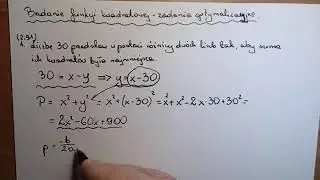 Badanie funkcji kwadratowej - zadania optymalizacyjne.
(2.91)
1. Liczbę 30 przedstaw w postaci różnicy dwóch liczb tak, aby suma
ich kwadratów była najmniejsza.
30 = x - y ⟹ y = x - 30
P = x² + y² = x² + (x - 30)² = x² + x² - 2x·30 + 30² =
= 2x² - 60x + 900
p = -b/2a